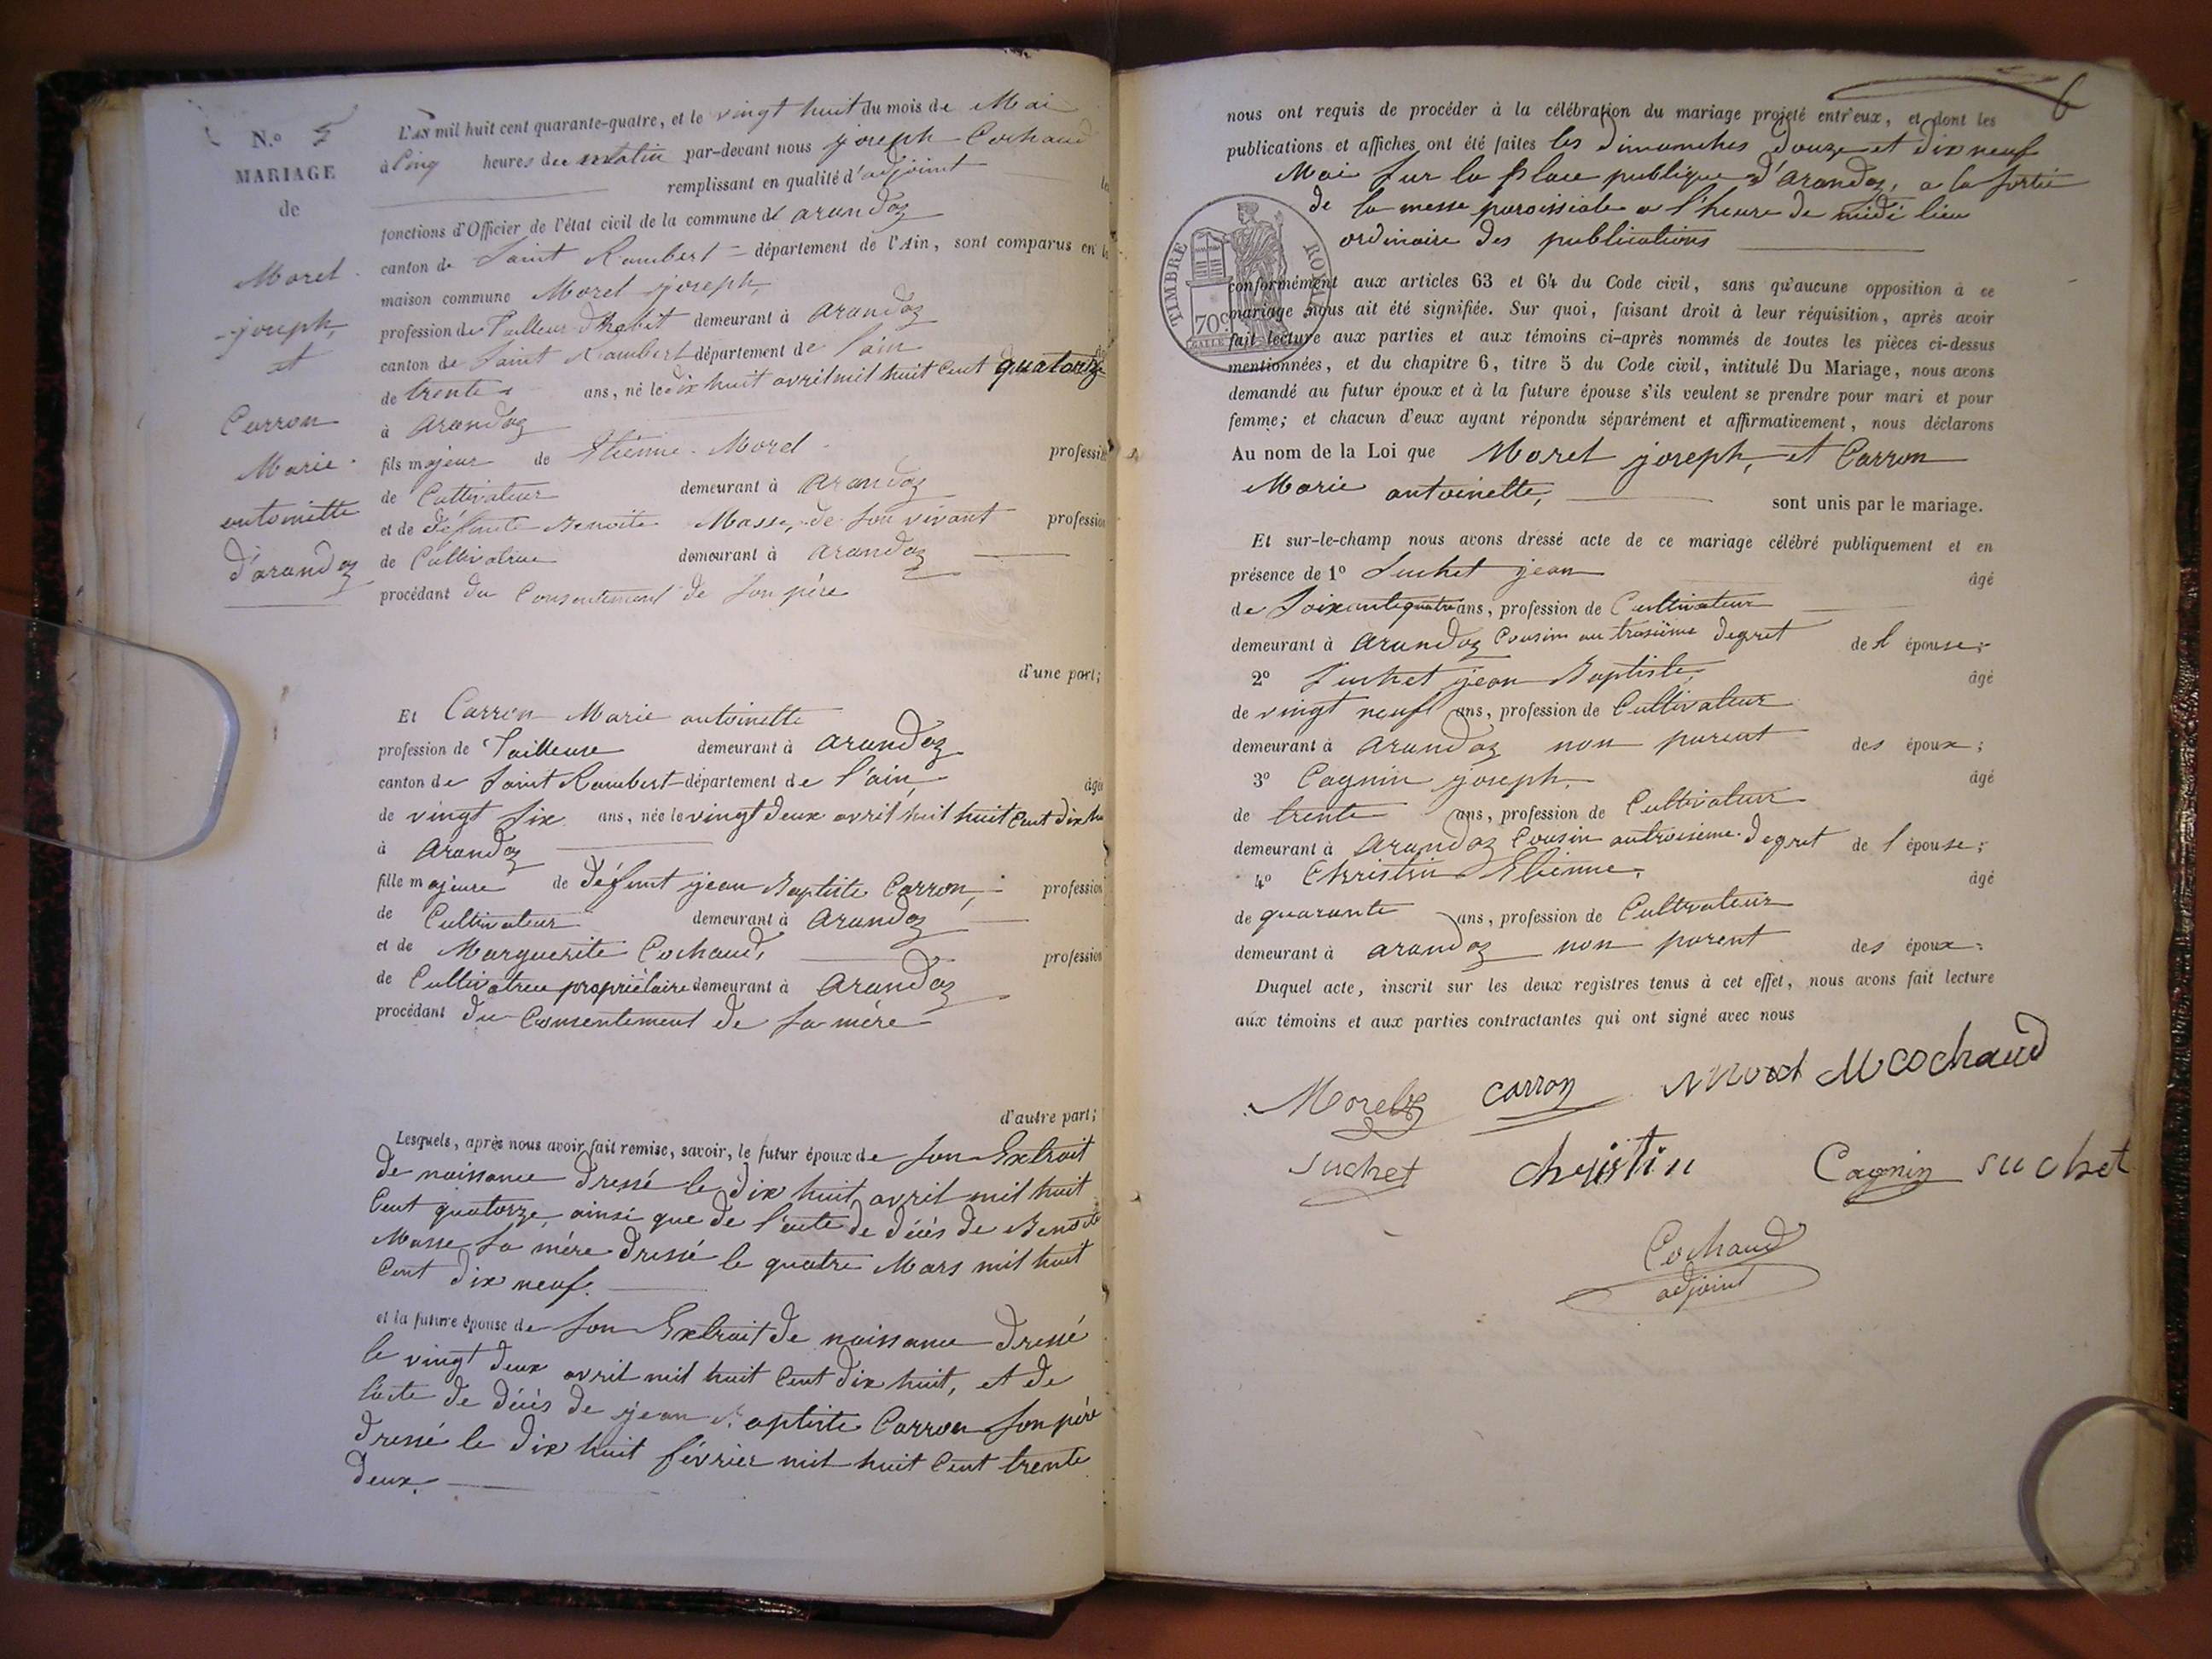 N.º 5
MARIAGE
de
Morel
joseph,
et
Carron
Marie
antoinette
d'arandaz
L'AN mil huit cent quarante-quatre, et le vingt huit du mois de Mai
à Cinq heures du matin par-devant nous joseph Cochaud
remplissant en qualité d'adjoint les
fonctions d'Officier de l'état civil de la commune de arandaz
canton de Saint Rambert département de l'Ain, sont comparus en la
maison commune Morel joseph,
profession de Tailleur d'habit demeurant à arandaz
canton de Saint Rambert département de l'ain
de trente ans, né le dix huit avril mil huit Cent quatorze
à arandaz
fils majeur de Etienne Morel profession
de Cultivateur demeurant à arandaz
et de défunte Benoite Masse, de son vivant profession
de Cultivatrice demeurant à arandaz
procédant du Consentement de son père
d'une part;
Et Carron Marie antoinette
profession de Tailleuse demeurant à arandaz
canton de Saint Rambert département de l'ain, âgée
de vingt six ans, née le vingt deux avril mil huit Cent dix hu
à arandaz
fille majeure de défunt jean Baptiste Carron, profession
de Cultivateur demeurant à arandaz
et de Marguerite Cochaud, profession
de Cultivatrice propriétaire demeurant à arandaz
procédant du Consentement de sa mère
d'autre part;
Lesquels, après nous avoir fait remise, savoir, le futur époux de son Extrait
de naissance dressé le dix huit avril mil huit
Cent quatorze, ainsi que de l'acte de décès de Benoite
Masse sa mère dressé le quatre Mars mil huit
Cent dix neuf.
et la future épouse de son Extrait de naissance dressé
le vingt deux avril mil huit Cent dix huit, et de
l'acte de décès de jean Baptiste Carron son père
dressé le dix huit février mil huit Cent trente
deux.
6
nous ont requis de procéder à la célébration du mariage projeté entr'eux, et dont les
publications et affiches ont été faites les dimanches douze et dix neuf
Mai sur la place publique d'arandaz, a la sortie
de la messe paroissiale a l'heure de midi lieu
ordinaire des publications
TIMBRE ROYAL
70c
conformément aux articles 63 et 64 du Code civil, sans qu'aucune opposition à ce
mariage nous ait été signifiée. Sur quoi, faisant droit à leur réquisition, après avoir
fait lecture aux parties et aux témoins ci-après nommés de toutes les pièces ci-dessus
mentionnées, et du chapitre 6, titre 5 du Code civil, intitulé Du Mariage, nous avons
demandé au futur époux et à la future épouse s'ils veulent se prendre pour mari et pour
femme; et chacun d'eux ayant répondu séparément et affirmativement, nous déclarons
Au nom de la Loi que Morel joseph, et Carron
Marie antoinette, sont unis par le mariage.
Et sur-le-champ nous avons dressé acte de ce mariage célébré publiquement et en
présence de 1º Suchet jean âgé
de Soixante quatre ans, profession de Cultivateur
demeurant à arandaz Cousin au troisième degret de l épouse;
2º Suchet jean Baptiste, âgé
de vingt neuf ans, profession de Cultivateur
demeurant à arandaz non parent des époux;
3º Cagnin joseph, âgé
de trente ans, profession de Cultivateur
demeurant à arandaz Cousin au troisième degret de l épouse;
4º Christin Etienne, âgé
de quarante ans, profession de Cultivateur
demeurant à arandaz non parent des époux.
Duquel acte, inscrit sur les deux registres tenus à cet effet, nous avons fait lecture
aux témoins et aux parties contractantes qui ont signé avec nous
Morel carron Morel M cochaud
suchet christin Cagnin suchet
Cochaud
adjoint